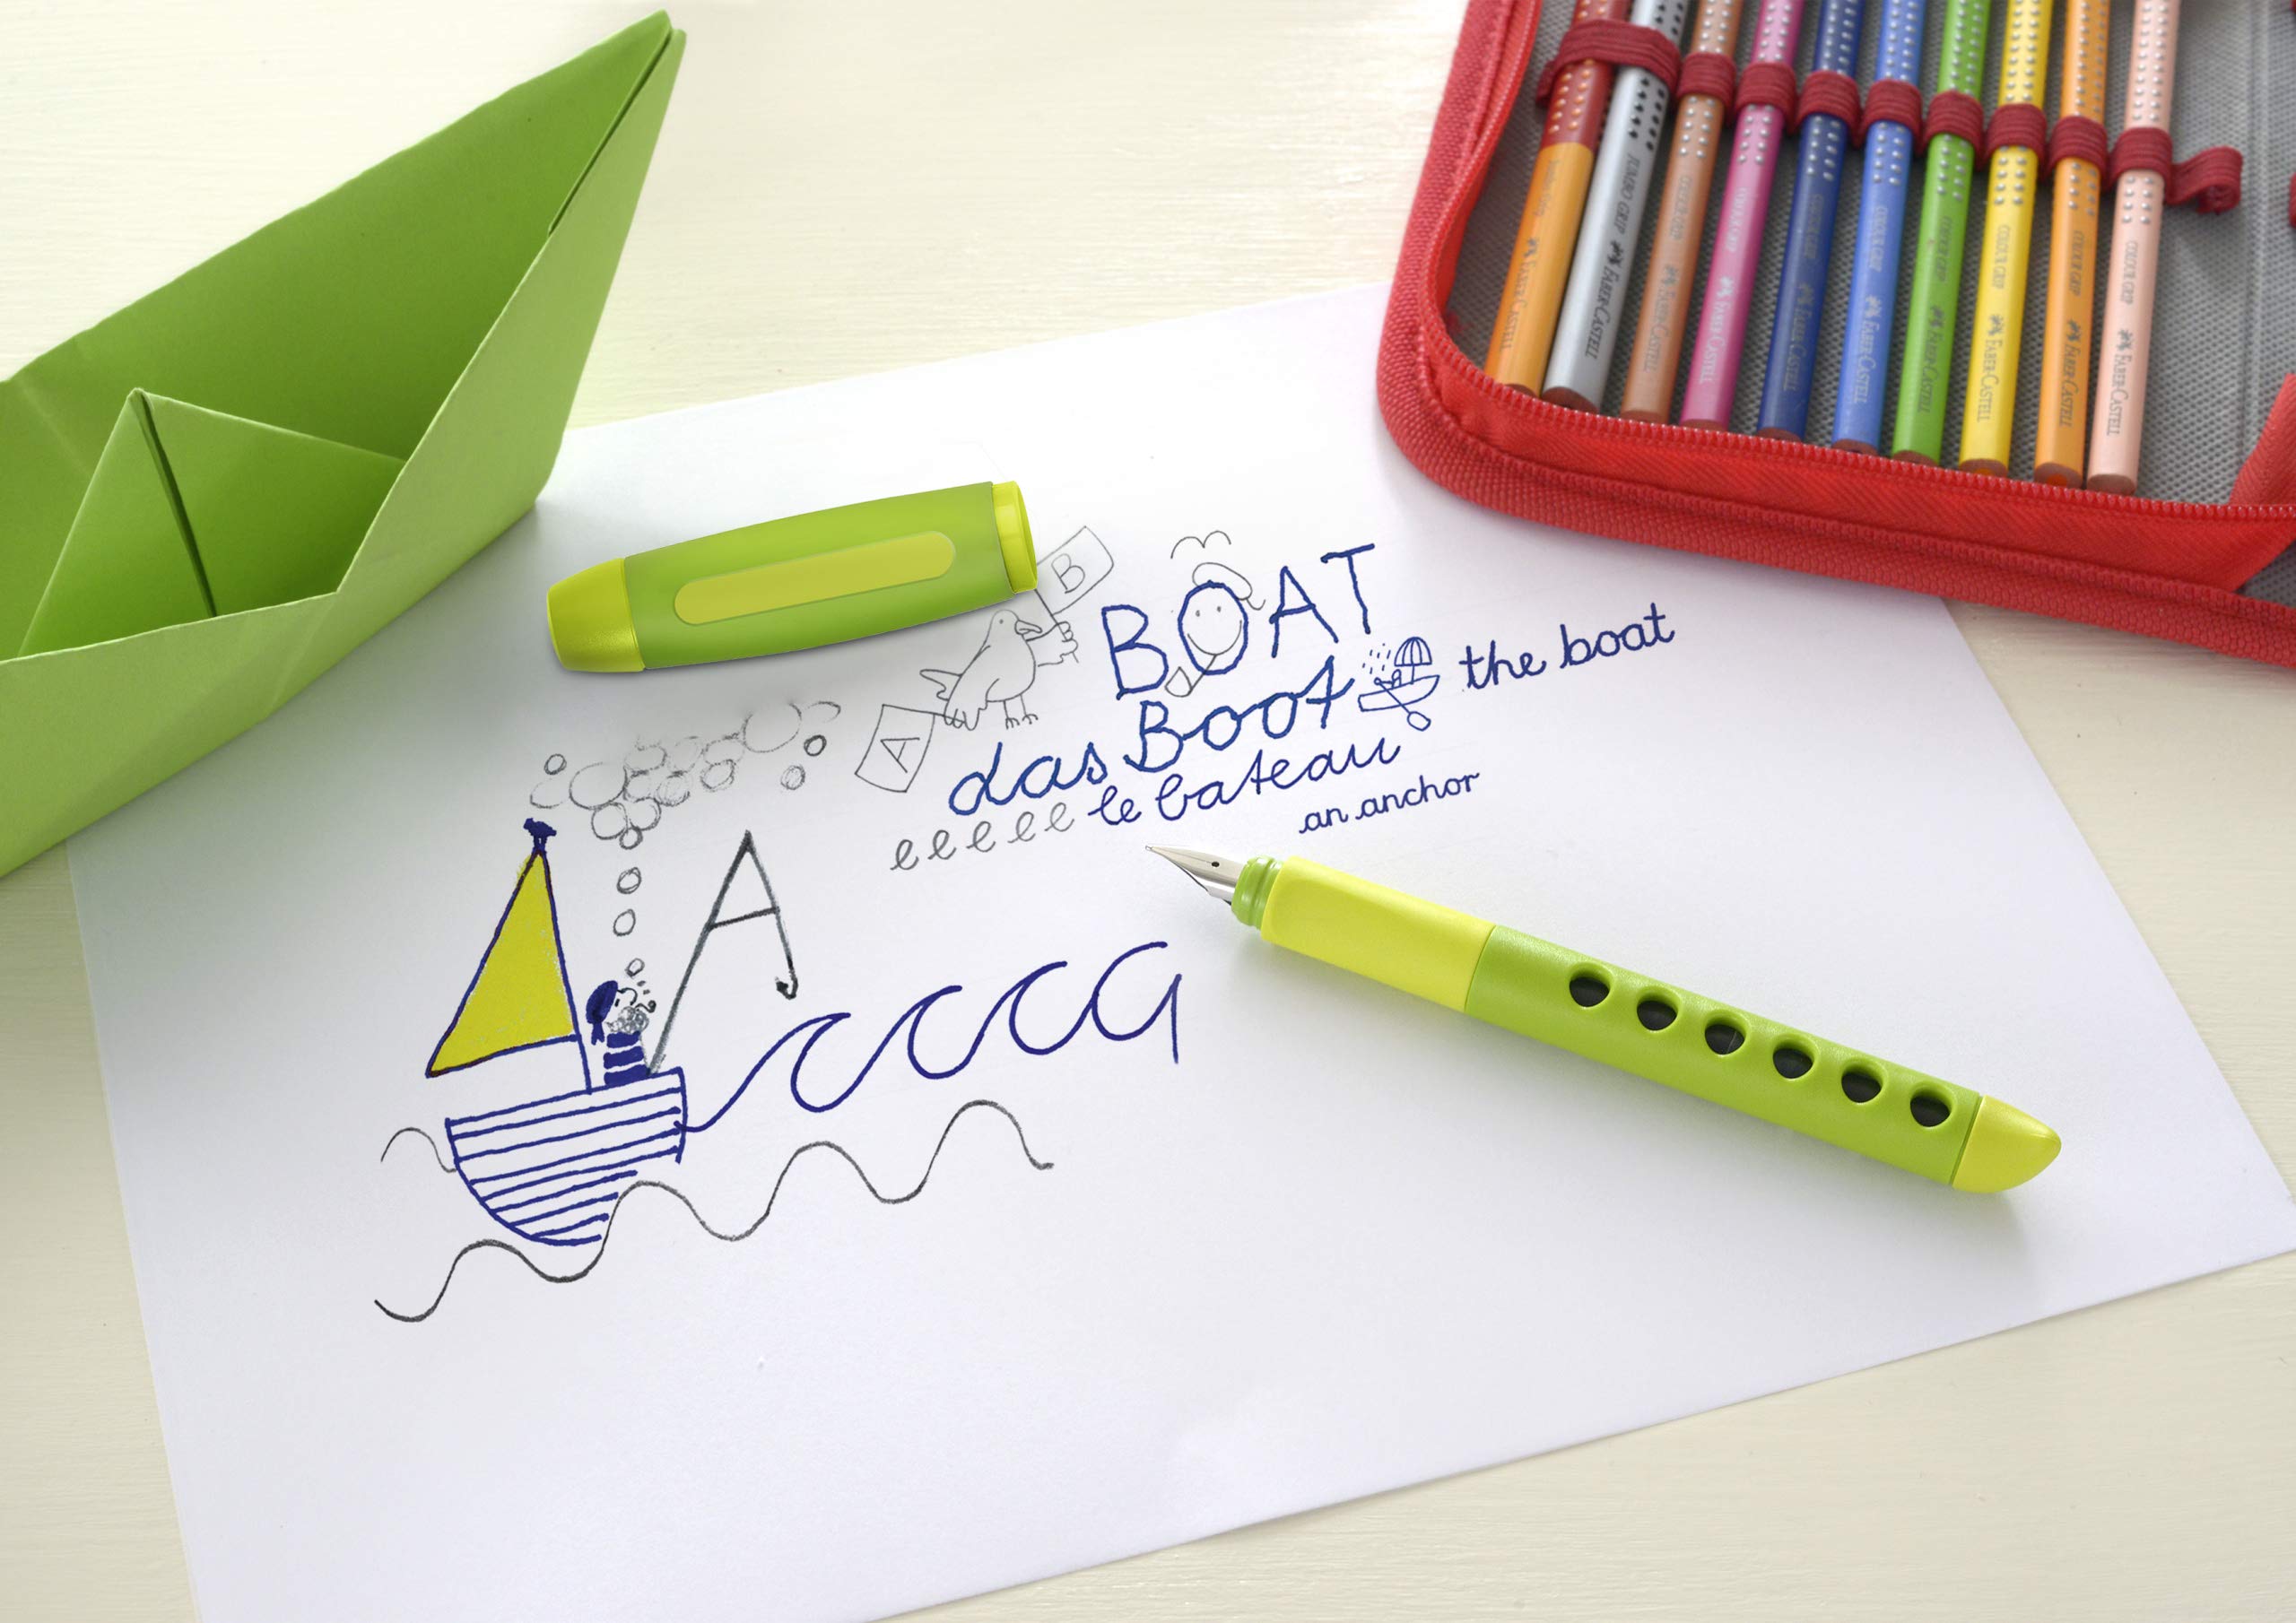 JUMBO GRIP FABER-CASTELL
COLOUR GRIP FABER-CASTELL
COLOUR GRIP FABER-CASTELL
COLOUR GRIP FABER-CASTELL
COLOUR GRIP FABER-CASTELL
COLOUR GRIP FABER-CASTELL
COLOUR GRIP FABER-CASTELL
COLOUR GRIP FABER-CASTELL
COLOUR GRIP FABER-CASTELL
FABER-CASTELL
B
BOAT
the boat
A
das Boot
le bateau
eeeee
an anchor
A